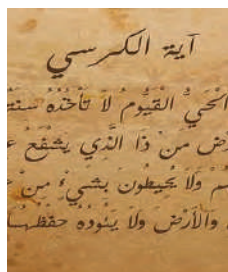 آية الكرسي
الْحَيُّ الْقَيُّومُ لَا تَأْخُذُهُ سنَة
مَنْ ذَا الَّذِي يشْفَعُ
وَلَا يُحِيطُونَ بِشَيْءٍ مِنْ
وَالْأَرْضَ وَلَا يَئُودُهُ حفظُهُمَا